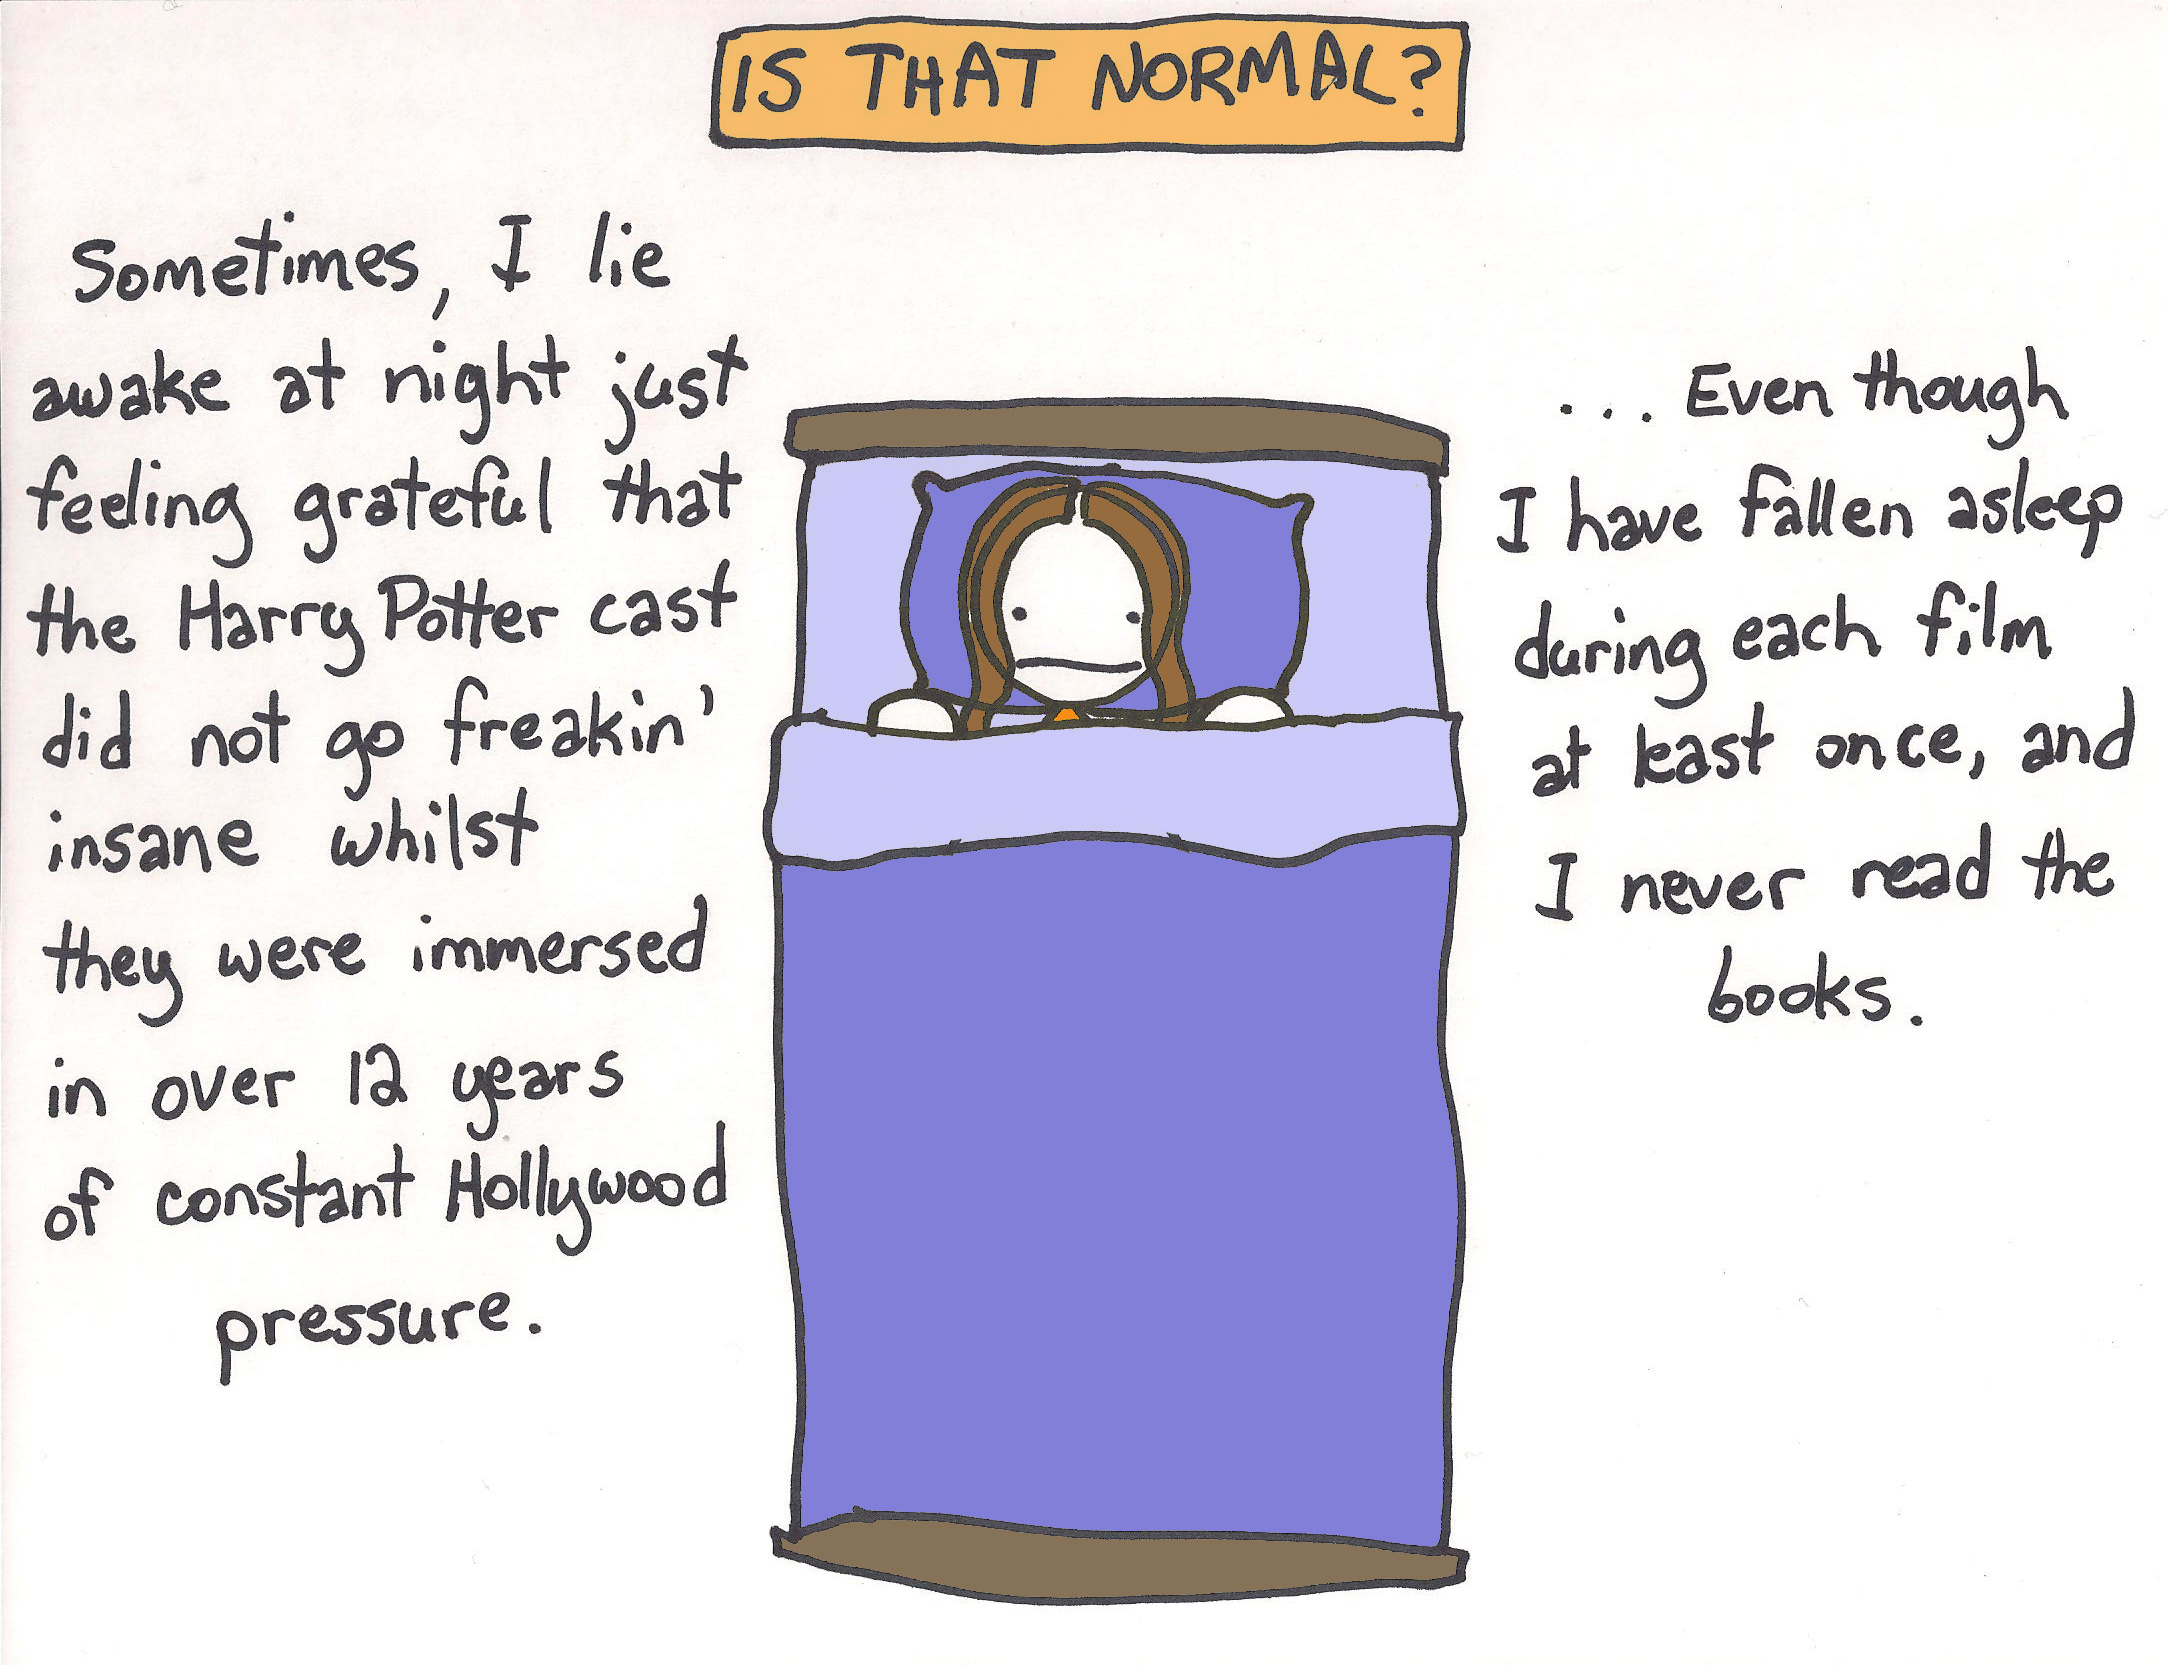 IS THAT NORMAL?
Sometimes, I lie
awake at night just
feeling grateful that
the Harry Potter cast
did not go freakin'
insane whilst
they were immersed
in over 12 years
of constant Hollywood
pressure.
... Even though
I have fallen asleep
during each film
at least once, and
I never read the
books.